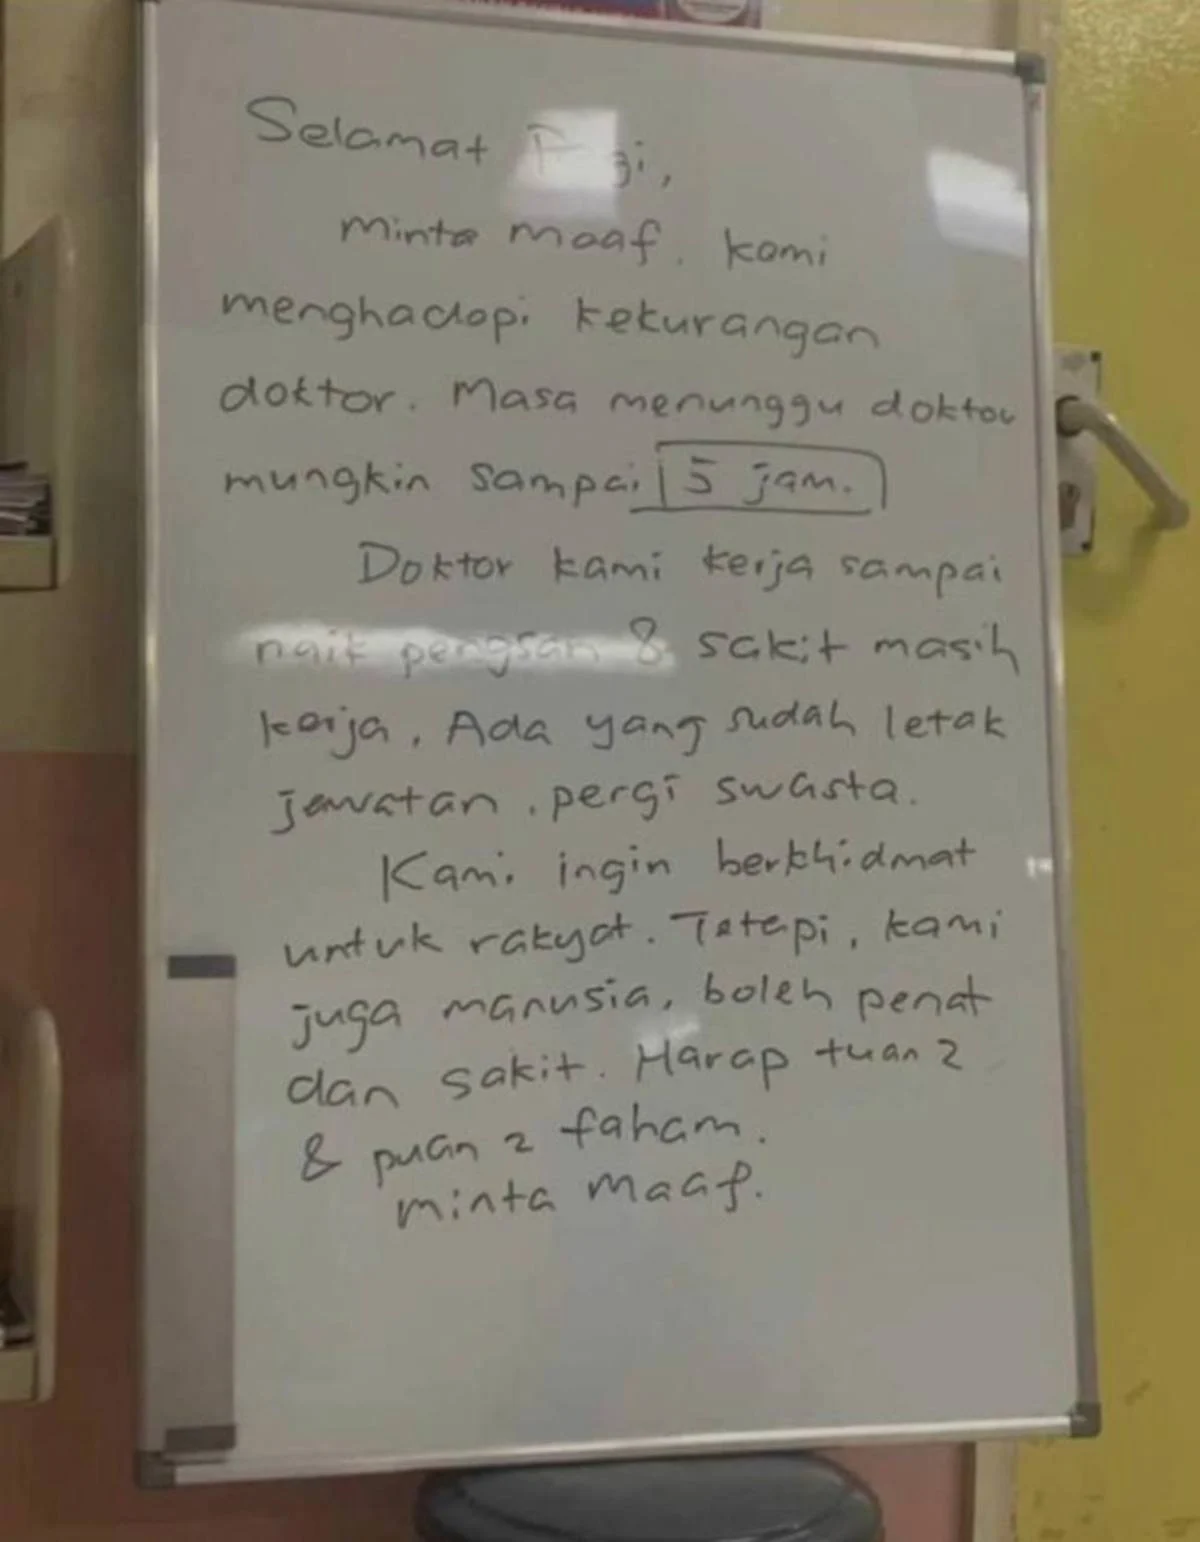 Selamat Pagi,
minta maaf. kami
menghadapi kekurangan
doktor. Masa menunggu doktor
mungkin sampai 5 jam.
Doktor kami kerja sampai
nait pengsan & sakit masih
kerja. Ada yang sudah letak
jawatan, pergi swasta.
Kami ingin berkhidmat
untuk rakyat. Tetapi, kami
juga manusia, boleh penat
dan sakit. Harap tuan2
& puan2 faham.
minta maaf.